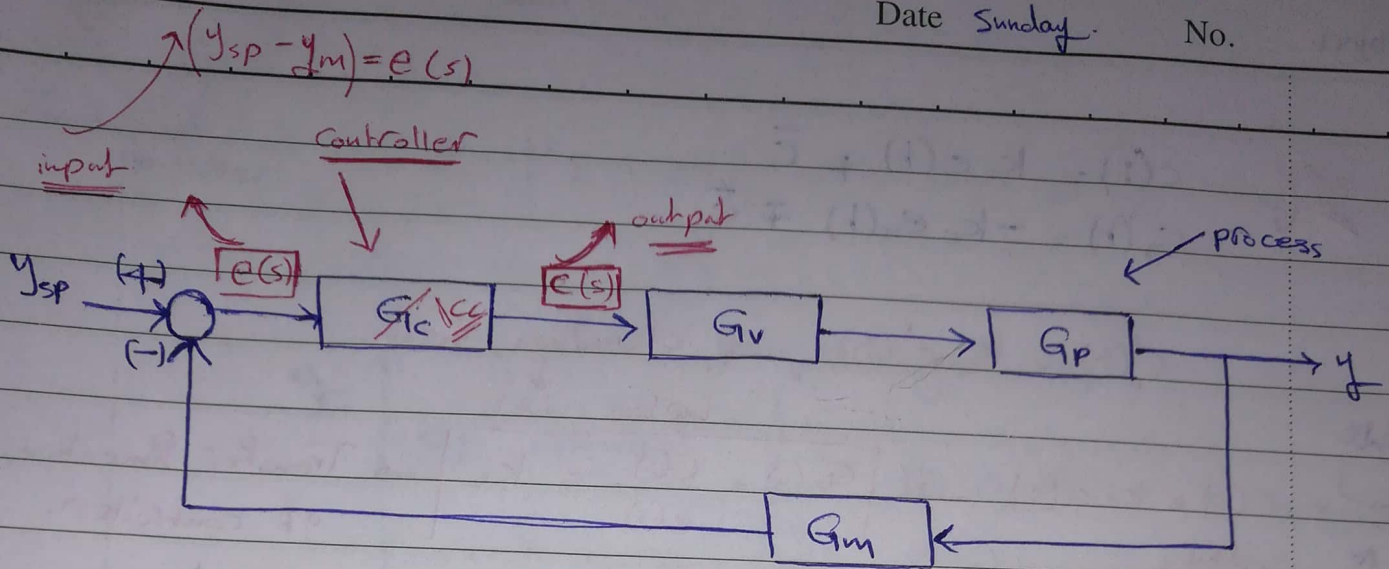 Date Sunday. No.
(ysp - ym) = e(s)
Controller
input
output
process
ysp (+) e(s) Gc kc c(s) Gv Gp y
(-)
Gm